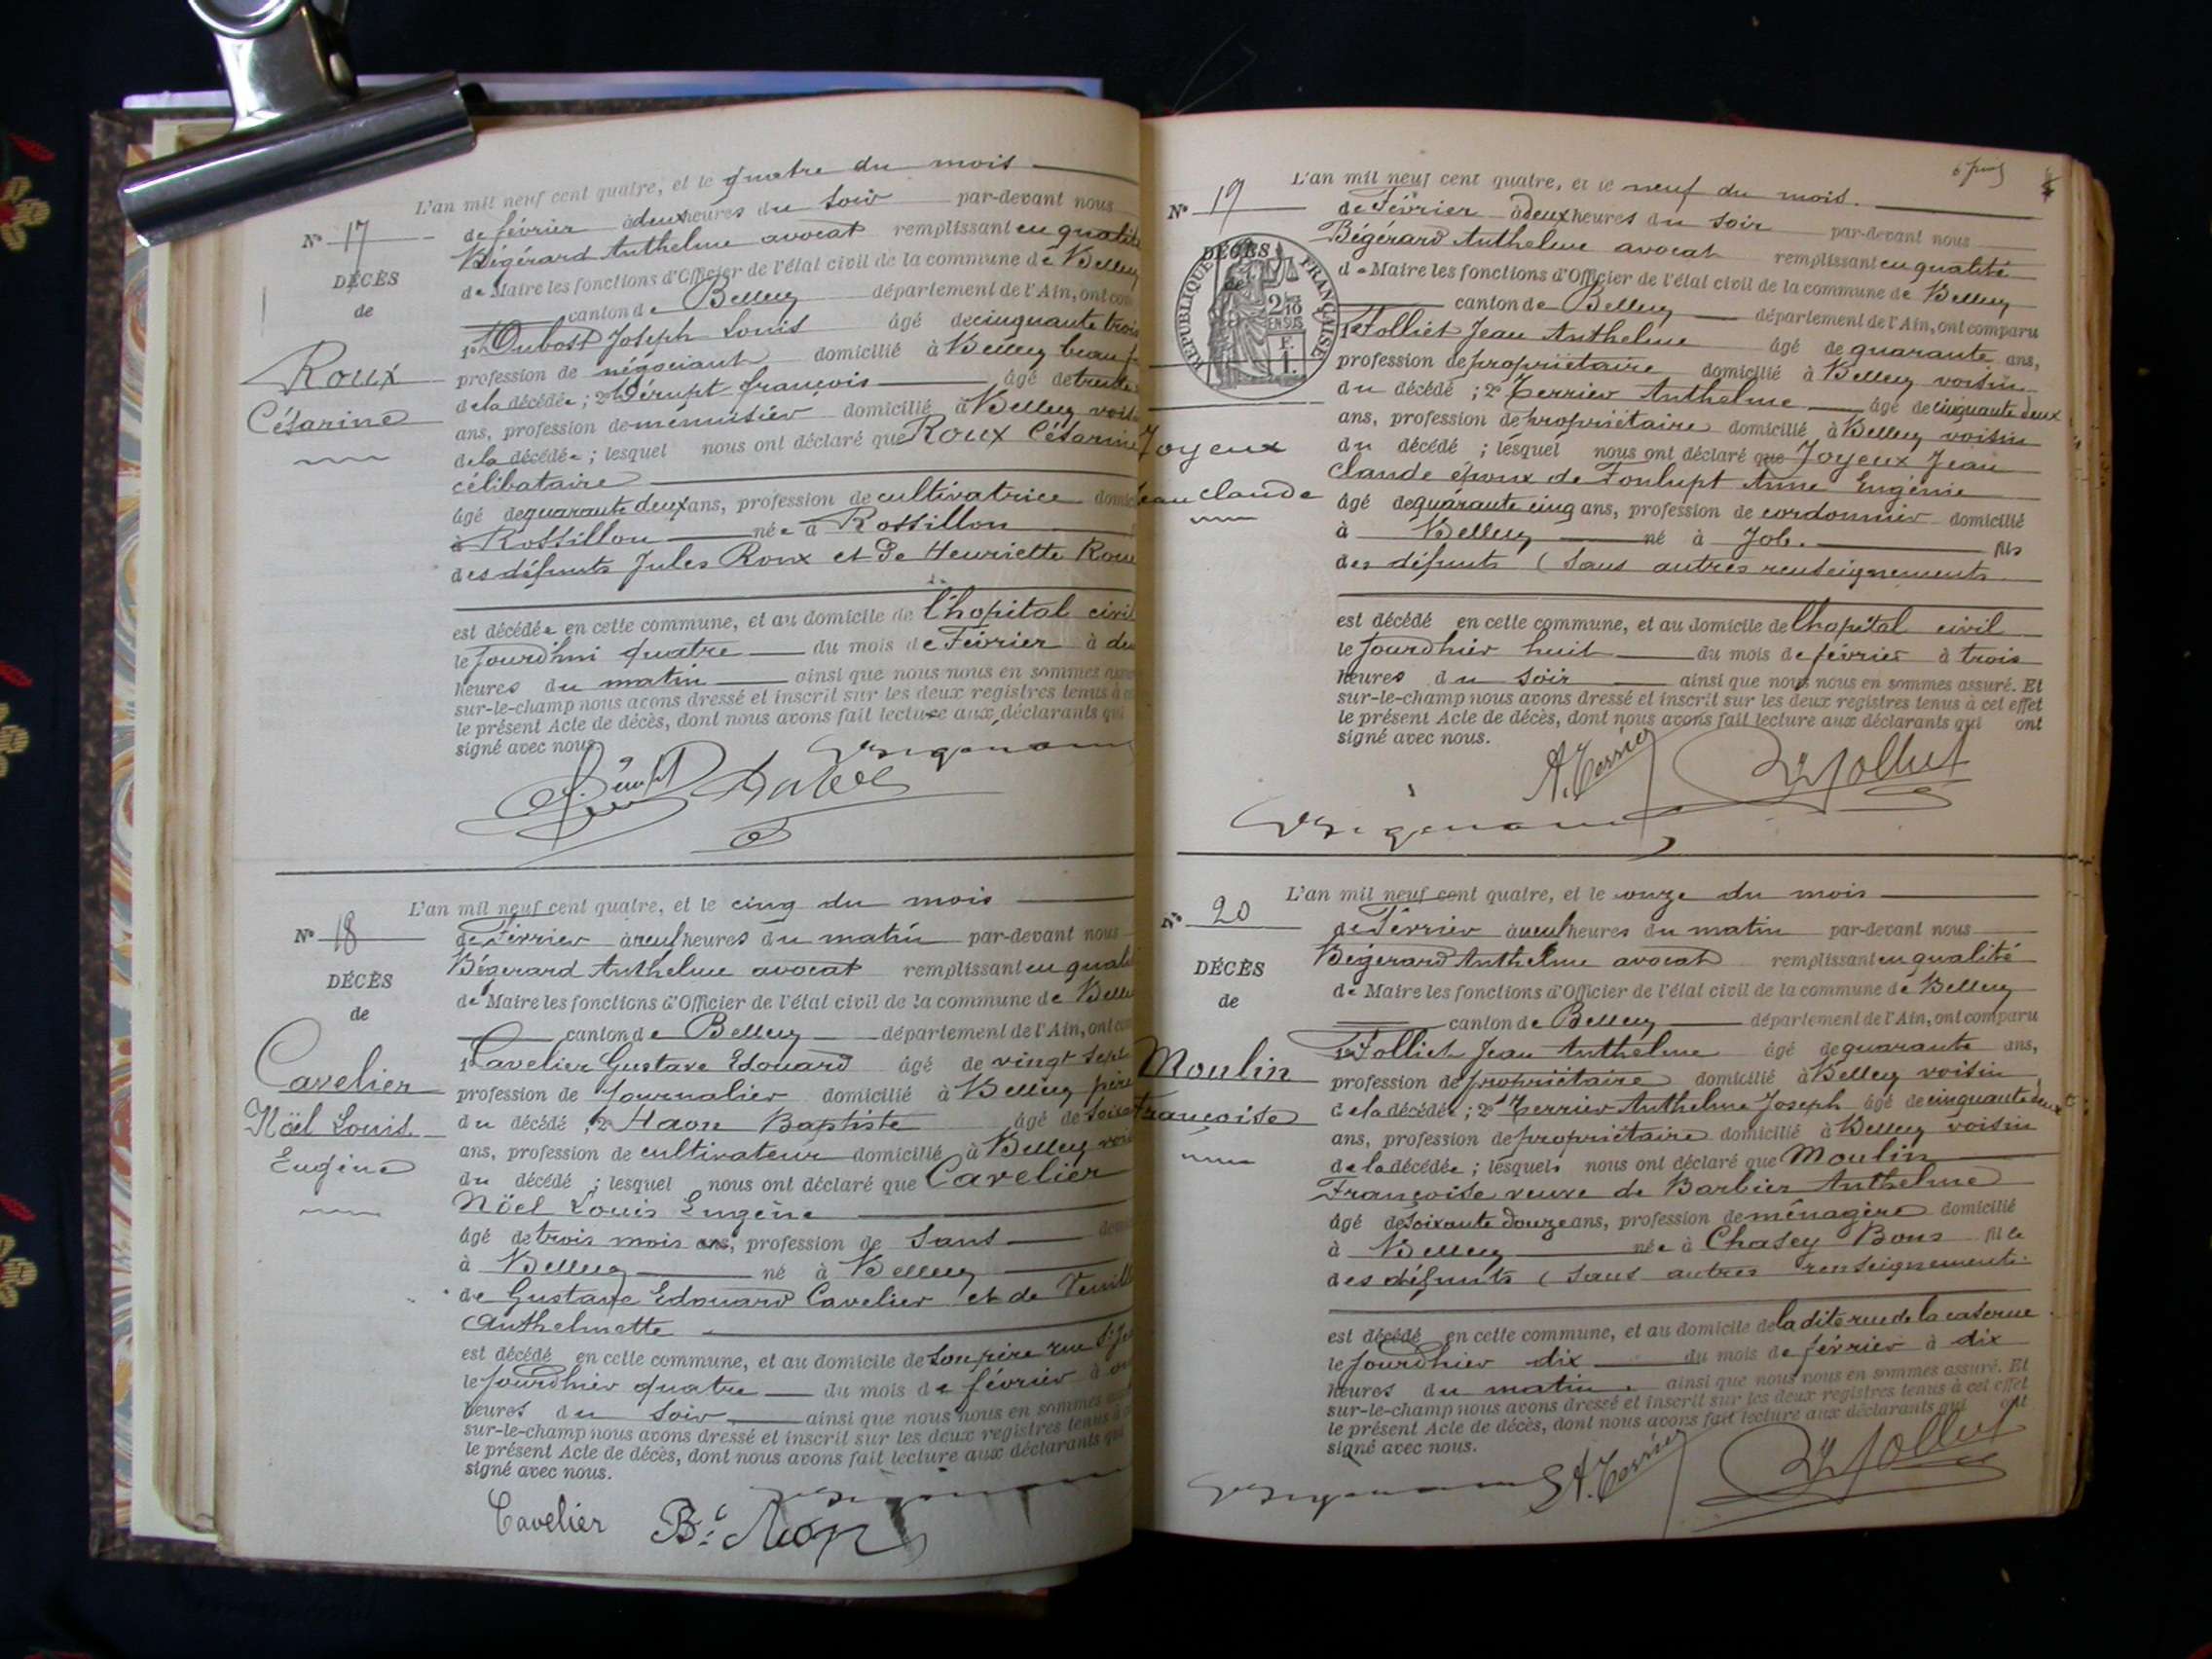 L'an mil neuf cent quatre, et le quatre du mois
N° 17
de février à deux heures du soir par-devant nous
Bégérard Anthelme avocat remplissant en qualité
DÉCÈS
de Maire les fonctions d'Officier de l'état civil de la commune de Belley
de
canton de Belley département de l'Ain, ont
1° Dubost Joseph Louis âgé de cinquante trois
Roux
profession de négociant domicilié à Belley beau
de la décédée ; 2° Dérupt françois âgé de trente
Césarine
ans, profession de menuisier domicilié à Belley
de la décédée ; lesquel nous ont déclaré que Roux Césarine
célibataire
âgé de quarante deux ans, profession de cultivatrice
à Rossillon née à Rossillon
des défunts Jules Roux et de Henriette
est décédée en cette commune, et au domicile de l'hopital civil
le jourd'hui quatre du mois de Février à
heures du matin ainsi que nous nous en sommes
sur-le-champ nous avons dressé et inscrit sur les deux registres tenus à
le présent Acte de décès, dont nous avons fait lecture aux déclarants qui
signé avec nous.
L'an mil neuf cent quatre, et le cinq du mois
N° 18
de Février à neuf heures du matin par-devant nous
Bégérard Anthelme avocat remplissant en
DÉCÈS
de Maire les fonctions d'Officier de l'état civil de la commune de
de
canton de Belley département de l'Ain, ont
1° Cavelier Gustave Edouard âgé de vingt sept
Cavelier
profession de journalier domicilié à Belley père
Nöel Louis
du décédé ; 2° Haon Baptiste âgé de
Eugène
ans, profession de cultivateur domicilié à Belley
du décédé ; lesquel nous ont déclaré que Cavelier
Nöel Louis Eugène
âgé de trois mois ans, profession de Sans
à Belley né à Belley
de Gustave Edouard Cavelier et de
Anthelmette
est décédé en cette commune, et au domicile de son père rue
le jourd'hier quatre du mois de février à
heures du soir ainsi que nous nous en sommes
sur-le-champ nous avons dressé et inscrit sur les deux registres tenus à
le présent Acte de décès, dont nous avons fait lecture aux déclarants qui
signé avec nous.
Cavelier
L'an mil neuf cent quatre, et le neuf du mois.
N° 19
de Février à deux heures du soir par-devant nous
Bégérard Anthelme avocat remplissant en qualité
DÉCÈS
de
RÉPUBLIQUE FRANÇAISE
2/10
EN SUS
F.
1.
de Maire les fonctions d'Officier de l'état civil de la commune de Belley
canton de Belley département de l'Ain, ont comparu
1° Folliet Jean Anthelme âgé de quarante ans,
profession de propriétaire domicilié à Belley voisin
du décédé ; 2° Terrier Anthelme âgé de cinquante deux
ans, profession de propriétaire domicilié à Belley voisin
Joyeux
du décédé ; lesquel nous ont déclaré que Joyeux Jean
Claude époux de Foulupt Anne Eugénie
Jean Claude
âgé de quarante cinq ans, profession de cordonnier domicilié
à Belley né à Job. fils
des défunts (Sans autres renseignements
est décédé en cette commune, et au domicile de l'hopital civil
le jourd'hier huit du mois de février à trois
heures du soir ainsi que nous nous en sommes assuré. Et
sur-le-champ nous avons dressé et inscrit sur les deux registres tenus à cet effet
le présent Acte de décès, dont nous avons fait lecture aux déclarants qui ont
signé avec nous.
A. Terrier Folliet
L'an mil neuf cent quatre, et le onze du mois
N° 20
de Février à neuf heures du matin par-devant nous
Bégérard Anthelme avocat remplissant en qualité
DÉCÈS
de Maire les fonctions d'Officier de l'état civil de la commune de Belley
de
canton de Belley département de l'Ain, ont comparu
1° Folliet Jean Anthelme âgé de quarante ans,
Moulin
profession de propriétaire domicilié à Belley voisin
Françoise
de la décédée ; 2° Terrier Anthelme Joseph âgé de cinquante deux
ans, profession de propriétaire domicilié à Belley voisin
de la décédée ; lesquels nous ont déclaré que Moulin
Françoise veuve de Barbier Anthelme
âgé de soixante douze ans, profession de ménagère domicilié
à Belley née à Chasey Bons fille
des défunts (Sans autres renseignements.
est décédé en cette commune, et au domicile de la dite rue de la caserne
le jourd'hier dix du mois de février à dix
heures du matin. ainsi que nous nous en sommes assuré. Et
sur-le-champ nous avons dressé et inscrit sur les deux registres tenus à cet effet
le présent Acte de décès, dont nous avons fait lecture aux déclarants qui ont
signé avec nous.
A. Terrier Folliet